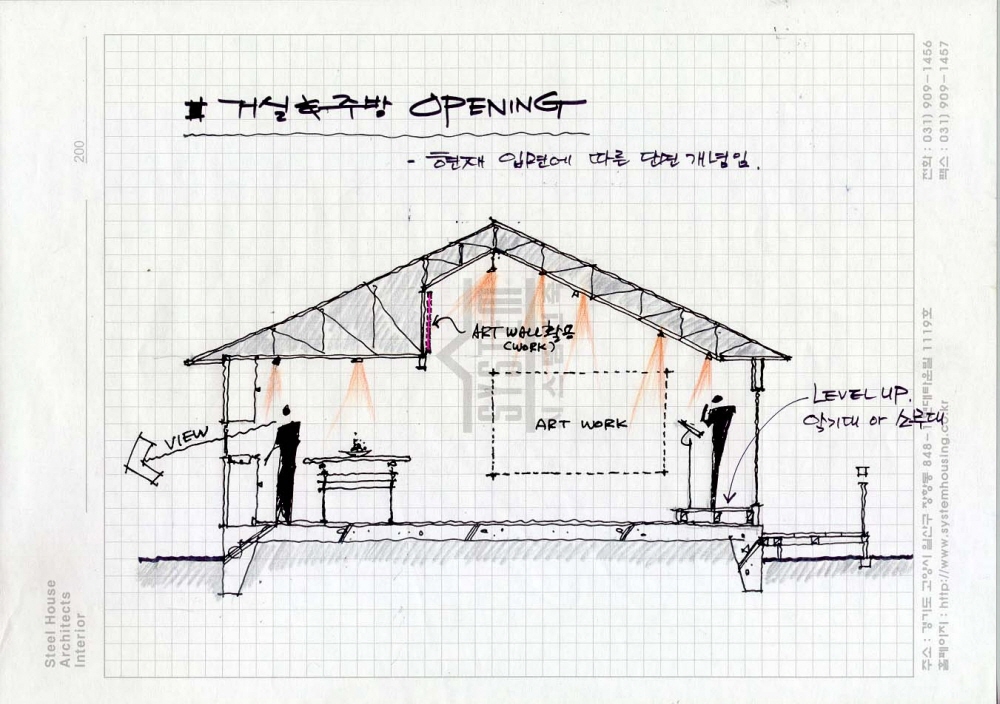 # 거실 & 주방 OPENING
- 현재 입면에 따른 단면 개념임.
ART WALL 활용
(WORK)
ART WORK
VIEW
LEVEL UP.
200
Steel House
Architects
Interior
전화 : 031) 909-1456
팩스 : 031) 909-1457
주소 : 경기도 고양시 일산구 장항동 848- 1119호
홈페이지 : http://www.systemhousing.co.kr